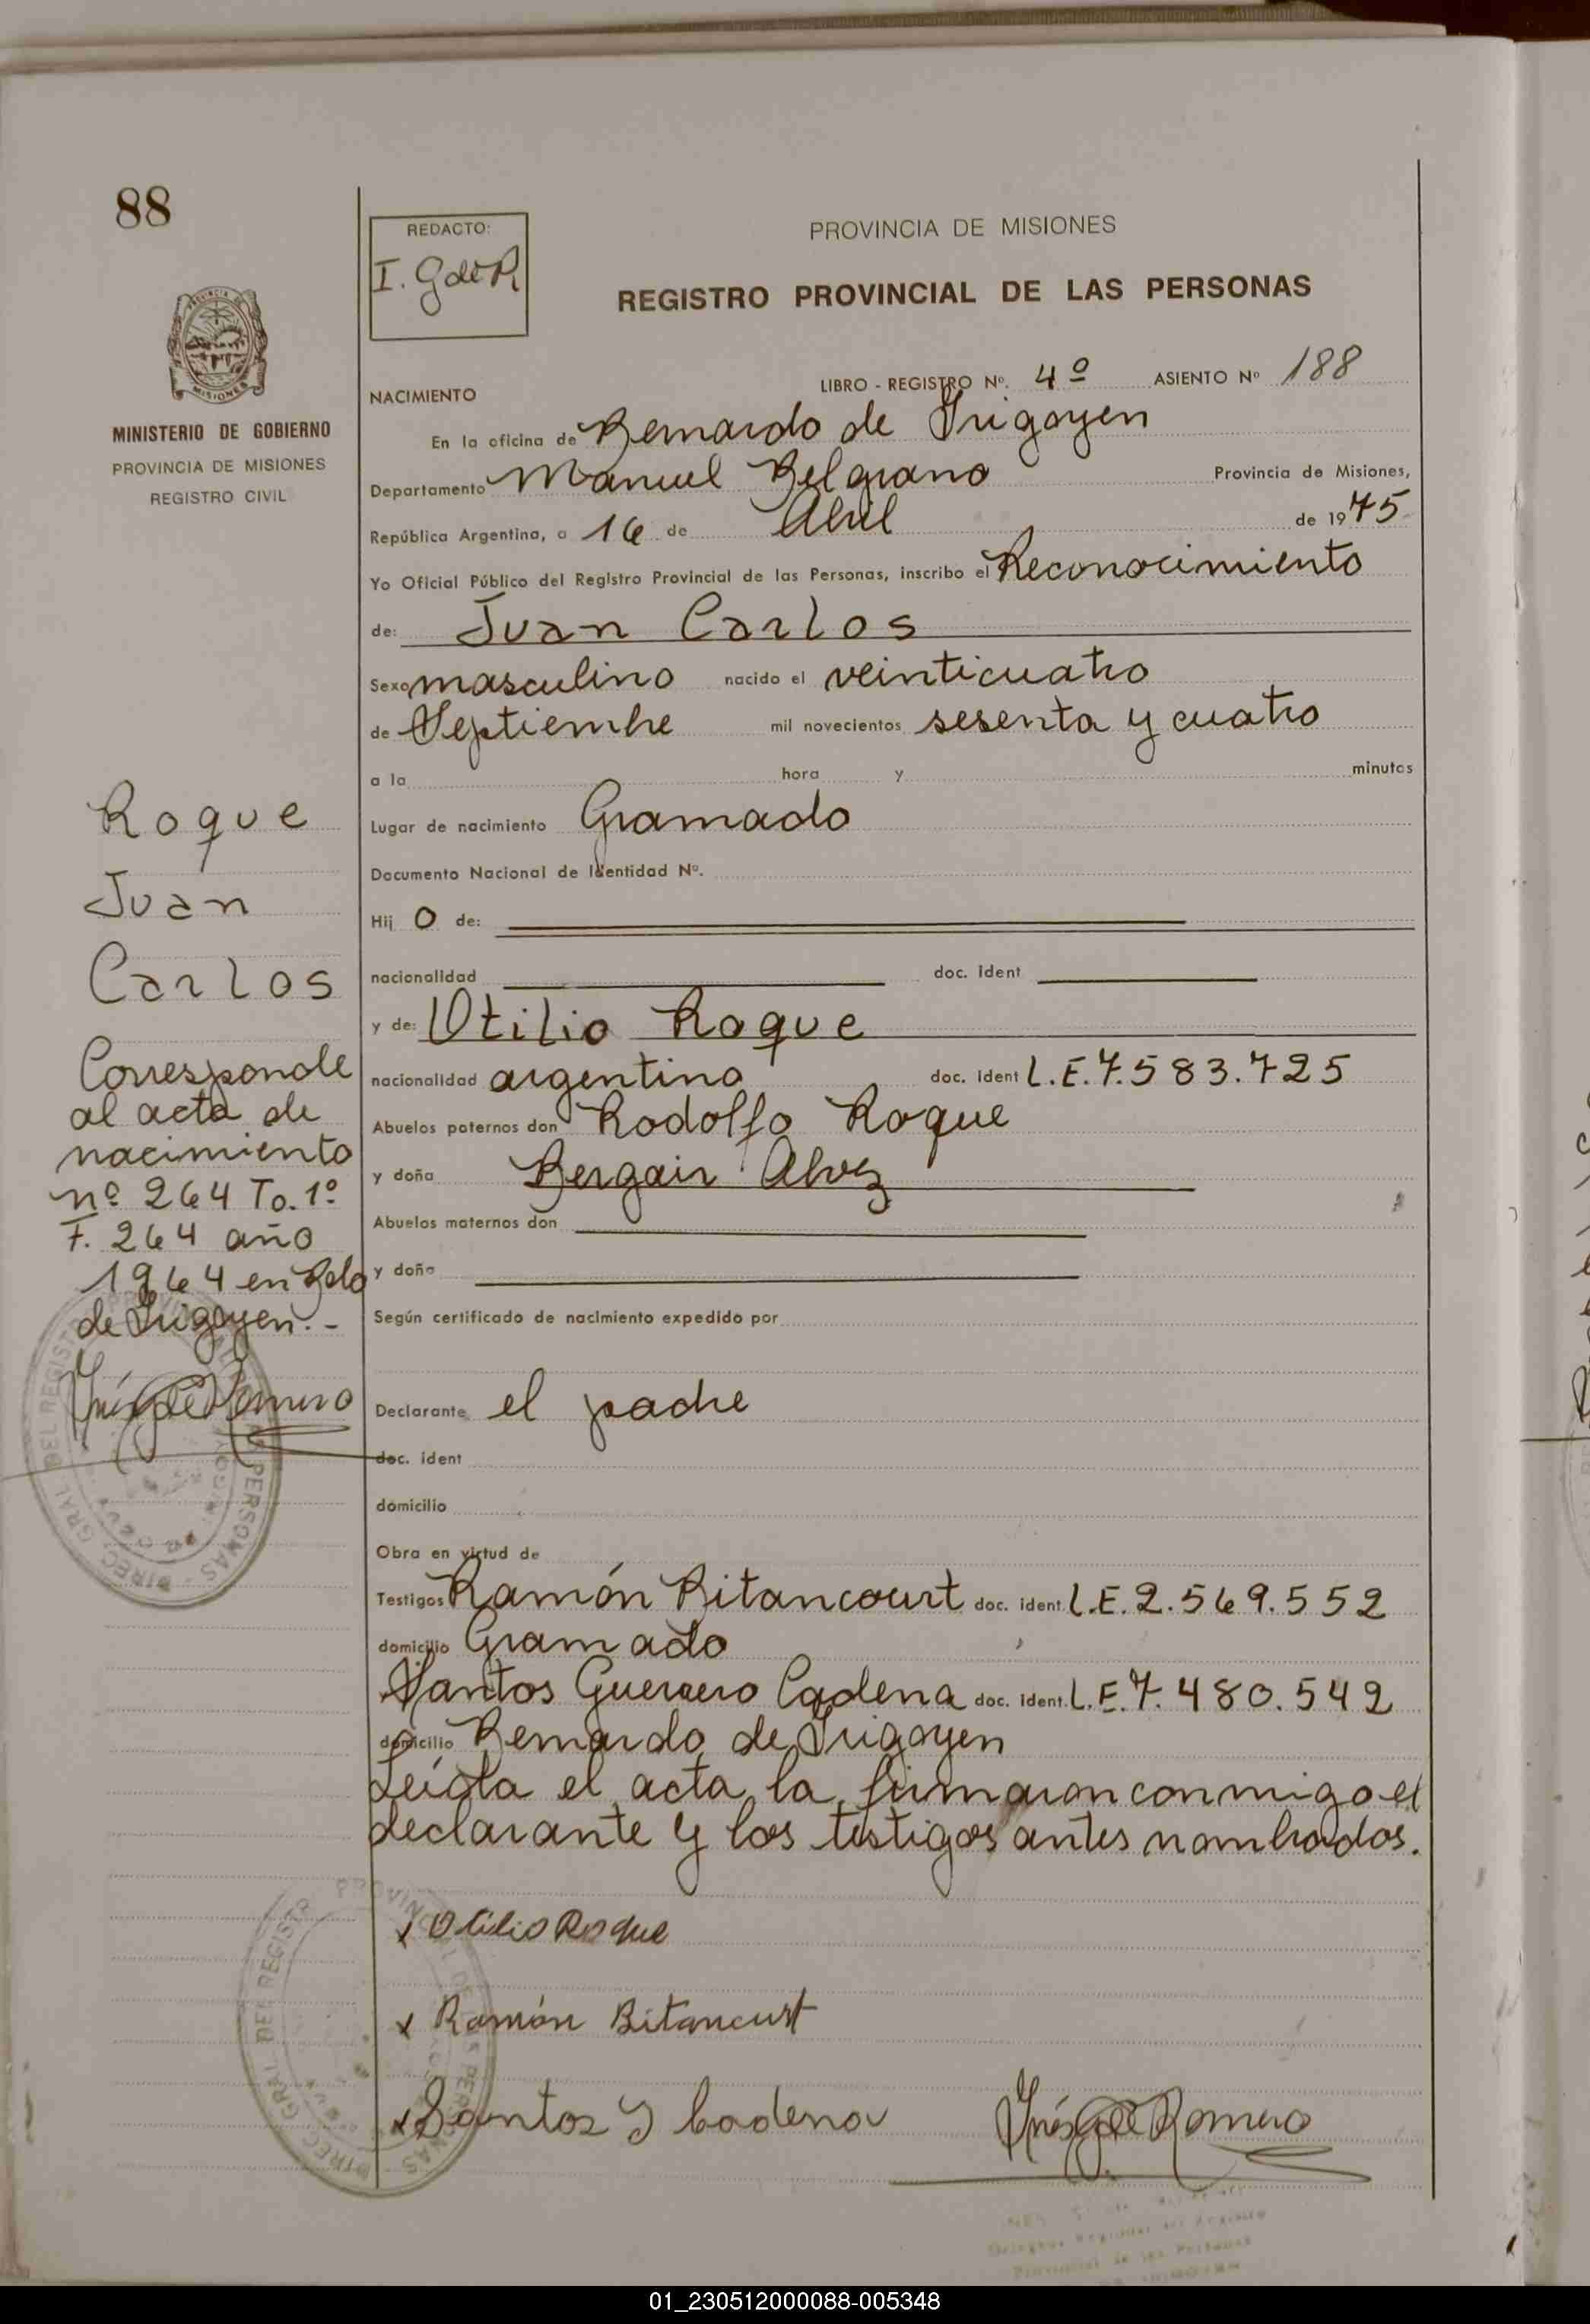 88
REDACTO:
I. G de R
PROVINCIA DE MISIONES
REGISTRO PROVINCIAL DE LAS PERSONAS
MINISTERIO DE GOBIERNO
PROVINCIA DE MISIONES
REGISTRO CIVIL
NACIMIENTO LIBRO - REGISTRO Nº. 4º ASIENTO Nº 188
En la oficina de Bernardo de Irigoyen
Departamento Manuel Belgrano Provincia de Misiones,
República Argentina, a 16 de Abril de 1975
Yo Oficial Público del Registro Provincial de las Personas, inscribo el Reconocimiento
de: Juan Carlos
Sexo masculino nacido el veinticuatro
de Septiembre mil novecientos sesenta y cuatro
a la hora y minutos
Lugar de nacimiento Gramado
Documento Nacional de Identidad Nº.
Hij o de:
nacionalidad doc. ident
y de: Otilio Roque
nacionalidad argentino doc. ident L.E. 7.583.725
Abuelos paternos don Rodolfo Roque
y doña Bergair Alvez
Abuelos maternos don
y doña
Según certificado de nacimiento expedido por
Declarante el padre
doc. ident
domicilio
Obra en virtud de
Testigos Ramón Bitancourt doc. ident. L.E. 2.569.552
domicilio Gramado
Santos Guerrero Cadena doc. ident. L.E. 7.480.542
domicilio Bernardo de Irigoyen
Leída el acta, la firmaron conmigo el
declarante y los testigos antes nombrados.
Roque
Juan
Carlos
Corresponde
al acta de
nacimiento
nº 264 To. 1º
F. 264 año
1964 en Bdo
de Irigoyen.-
Inés G de Romero
x Otilio Roque
x Ramón Bitancurt
x Santos G Cadena
Inés G de Romero
01_230512000088-005348